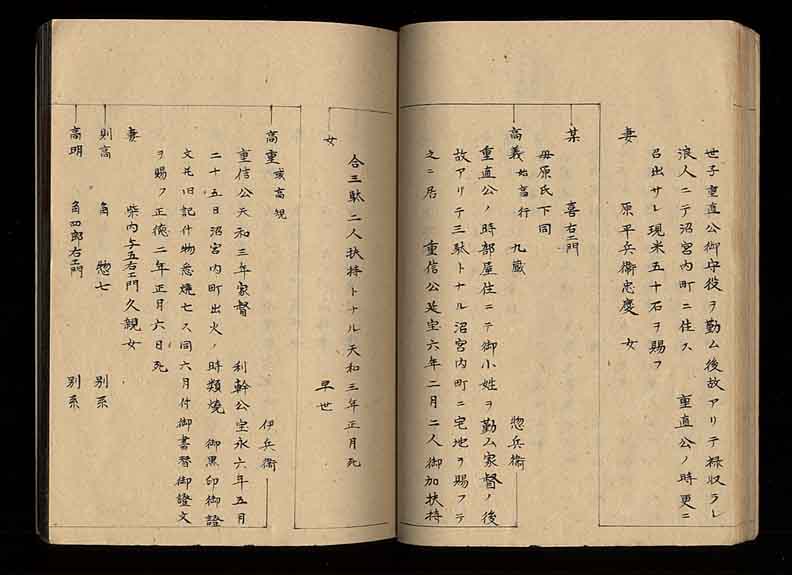 世子重直公御守役ヲ勤ム後故アリテ禄収ラレ
浪人ニテ沼宮内町ニ住ス　重直公ノ時更ニ
召出サレ現米五十石ヲ賜フ
妻　原平兵衛忠慶　女
某　喜右エ門
母原氏下同
高義　始高行　九蔵　惣兵衛
重直公ノ時部屋住ニテ御小姓ヲ勤ム家督ノ後
故アリテ三駄トナル沼宮内町ニ宅地ヲ賜フテ
之ニ居　重信公延宝六年二月二人御加扶持
合三駄二人扶持トナル天和三年正月死
女　早世
高重　或高規　伊兵衛
重信公天和三年家督　利幹公宝永六年五月
二十五日沼宮内町出火ノ時類焼　御黒印御證
文并旧記什物悉焼亡ス同六月付御書替御證文
ヲ賜フ正徳二年正月六日死
妻　柴内与五右エ門久親女
則高　角　惣七　別系
高明　角四郎右エ門　別系